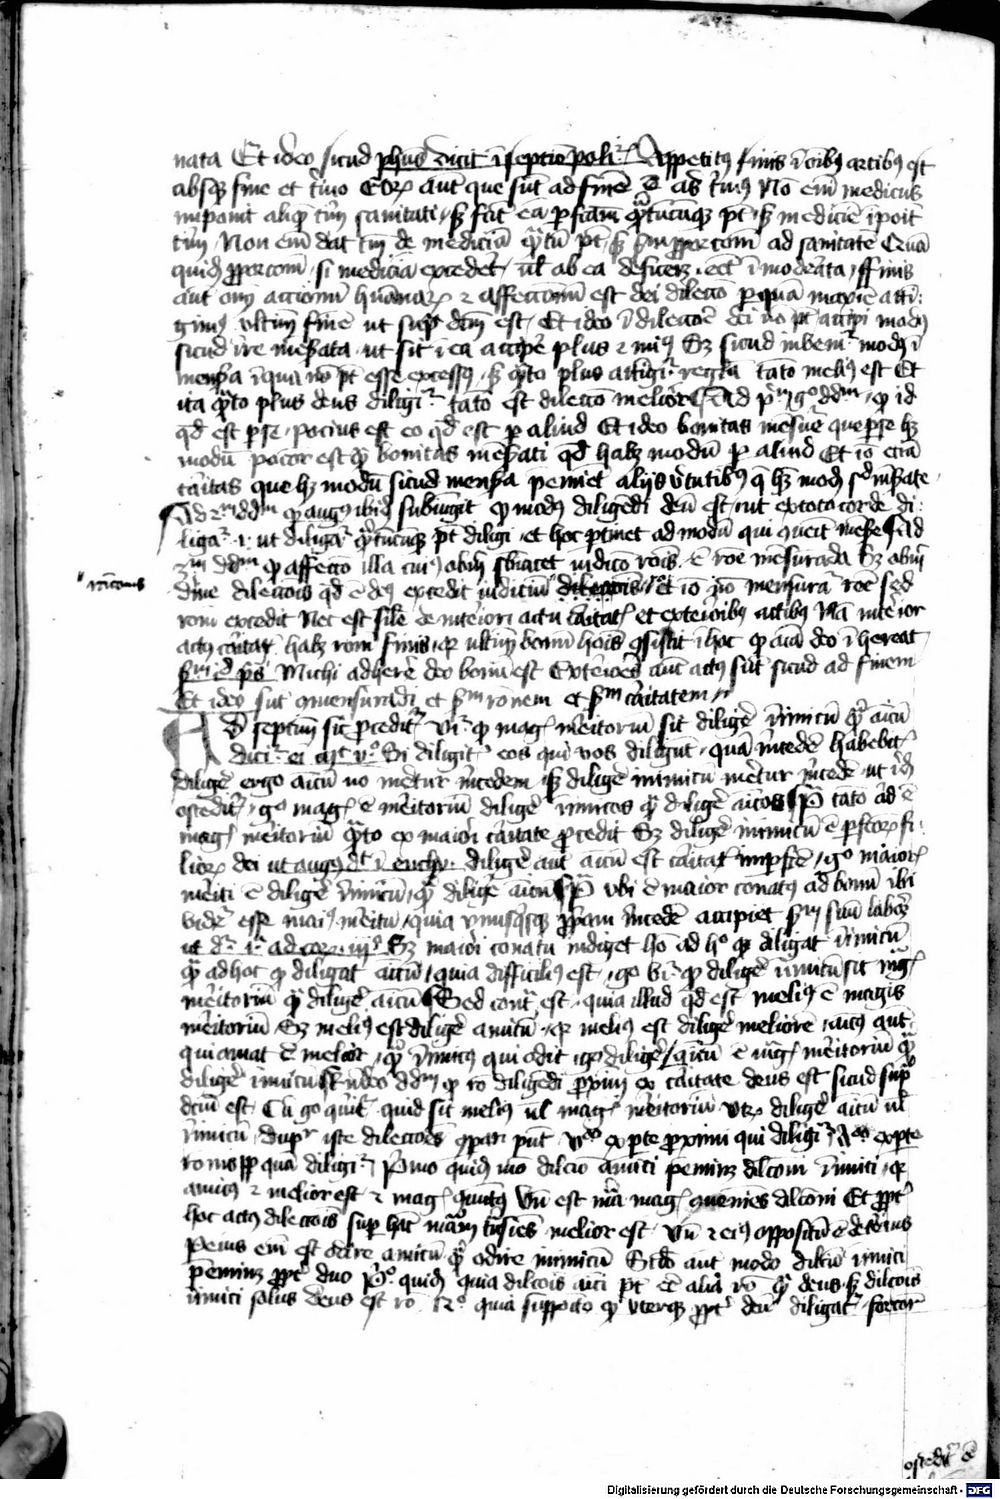 nata Et ideo sicud phus dicit i septio poli Appetitus finis i oibus artibus est
absque fine et tmio Eorum aut que sut ad fine e als tmus No em medicus
imponit aliquem tm sanitati sed facit ea perfectam quatucumque pt sed medicie ipoit
tm Non em dat tm de medicia quatu pt sed sm proporcom ad sanitate Qua
quidem proporcom si medicia excederet ul ab ea deficeret eet imoderata ffinis
aut oium actionum huanarum et affectionum est dei dilectio per qua maxie atti
gimus ultim fine ut supra dcm est Et ideo i dilectioe dei no pt accipi modus
sicud i re mesurata ut sit i ea accipe plus et minus Sed sicud invenitur modus i
mensura i qua no pt esse excessus sed quato plus attigitur regula tato melius est Et
ita quato plus deus diligitur tato est dilectio melior Ad pm go ddm quod id
qd est per se pocius est eo qd est per aliud Et ideo bonitas mesure que per se habet
modu pocior est quam bonitas mesurati qd habet modu per aliud Et io etia
caritas que habet modum sicud mensura preminet aliis virtutibus que habent modum sicud mesurate
Ad 2m ddm quod augus ibidem subiungit quod modus diligendi deu est ut ex toto corde di
ligatur i ut diligatur quatucumque pt diligi et hoc ptinet ad modu qui quenit mesure Ad
3m ddm quod affectio illa cuius obim subiacet iudicio rois e roe mesurada Sed obim
diine dilectiois quod e deus excedit iudicium dilectiois et io no mensuratur roe sed
rom excedit Nec est sile de interiori actu caritatis et exterioribus actibus Nam interior
actus caritatis habet rom finis quia ultimum bonum hois consistit i hoc quod aia deo i hereat
sm id ps Michi adherere deo bonu est Exteriores aut actus sut sicud ad finem
Et ideo sut commensurandi et sm ronem et sm caritatem
rationis
Ad septim sic proceditur Vi quod magis meritoriu sit diligere inimicu quam amicu
Dicitur ei mt v Si diligitis eos qui vos diligut qua mercede habebitis
Diligere ergo amicu no meretur mercedem sed diligere inimicu meretur mercede ut ibidem
osteditur go magis e meritoriu diligere inimicos quam diligere amicos P tato aliquid e
magis meritoriu quato ex maiori caritate procedit Sed diligere inimicu e perfectorum fi
liorum dei ut augus dt i enchir diligere aut amicu est caritatis imperfecte go maioris
meriti e diligere inimicu quam diligere amicu P ubi e maior conatus ad bonu ibi
videtur esse maius meritu quia unusquisque propriam mercede accipiet sm suu labore
ut dr i ad cor iii Sed maiori conatu indiget ho ad ho quod diligat inimicu
quam ad hoc quod diligat amicu quia difficilius est go vi quod diligere inimicu sit magis
meritoriu quam diligere amicu Sed contra est quia illud qd est melius e magis
meritoriu Sed melius est diligere amicu quia melius est diligere meliore amicus aut
qui amat e melior quam inimicus qui odit go diligere amicu e magis meritoriu quam
diligere inimicu Rndeo ddm quod ro diligendi proximi ex caritate deus est sicud supra
dcm est Cu go queritur quid sit melius ul magis meritoriu utrum diligere amicu ul
inimicu dupliciter iste dilectiones comparari put Uno ex parte proximi qui diligitur Alio ex parte
rois propter qua diligitur Primo quidem modo dilectio amici preminet dilectioni inimici quia
amicus et melior est et magis coniunctus Un est materia magis conueniens dilectioni Et propter
hoc actus dilectiois super hanc materiam transiens melior est Un et eius oppositum e deterius
Peius em est odire amicu quam odire inimicu Secundo aut modo dilectio inimici
preminet propter duo Pro quidem quia dilectiois amici pt ee alia ro quam deus sed dilectiois
inimici solus deus est ro 2o quia supposito quod uterque propter deum diligatur forcior
ostedit e
Digitalisierung gefördert durch die Deutsche Forschungsgemeinschaft - DFG